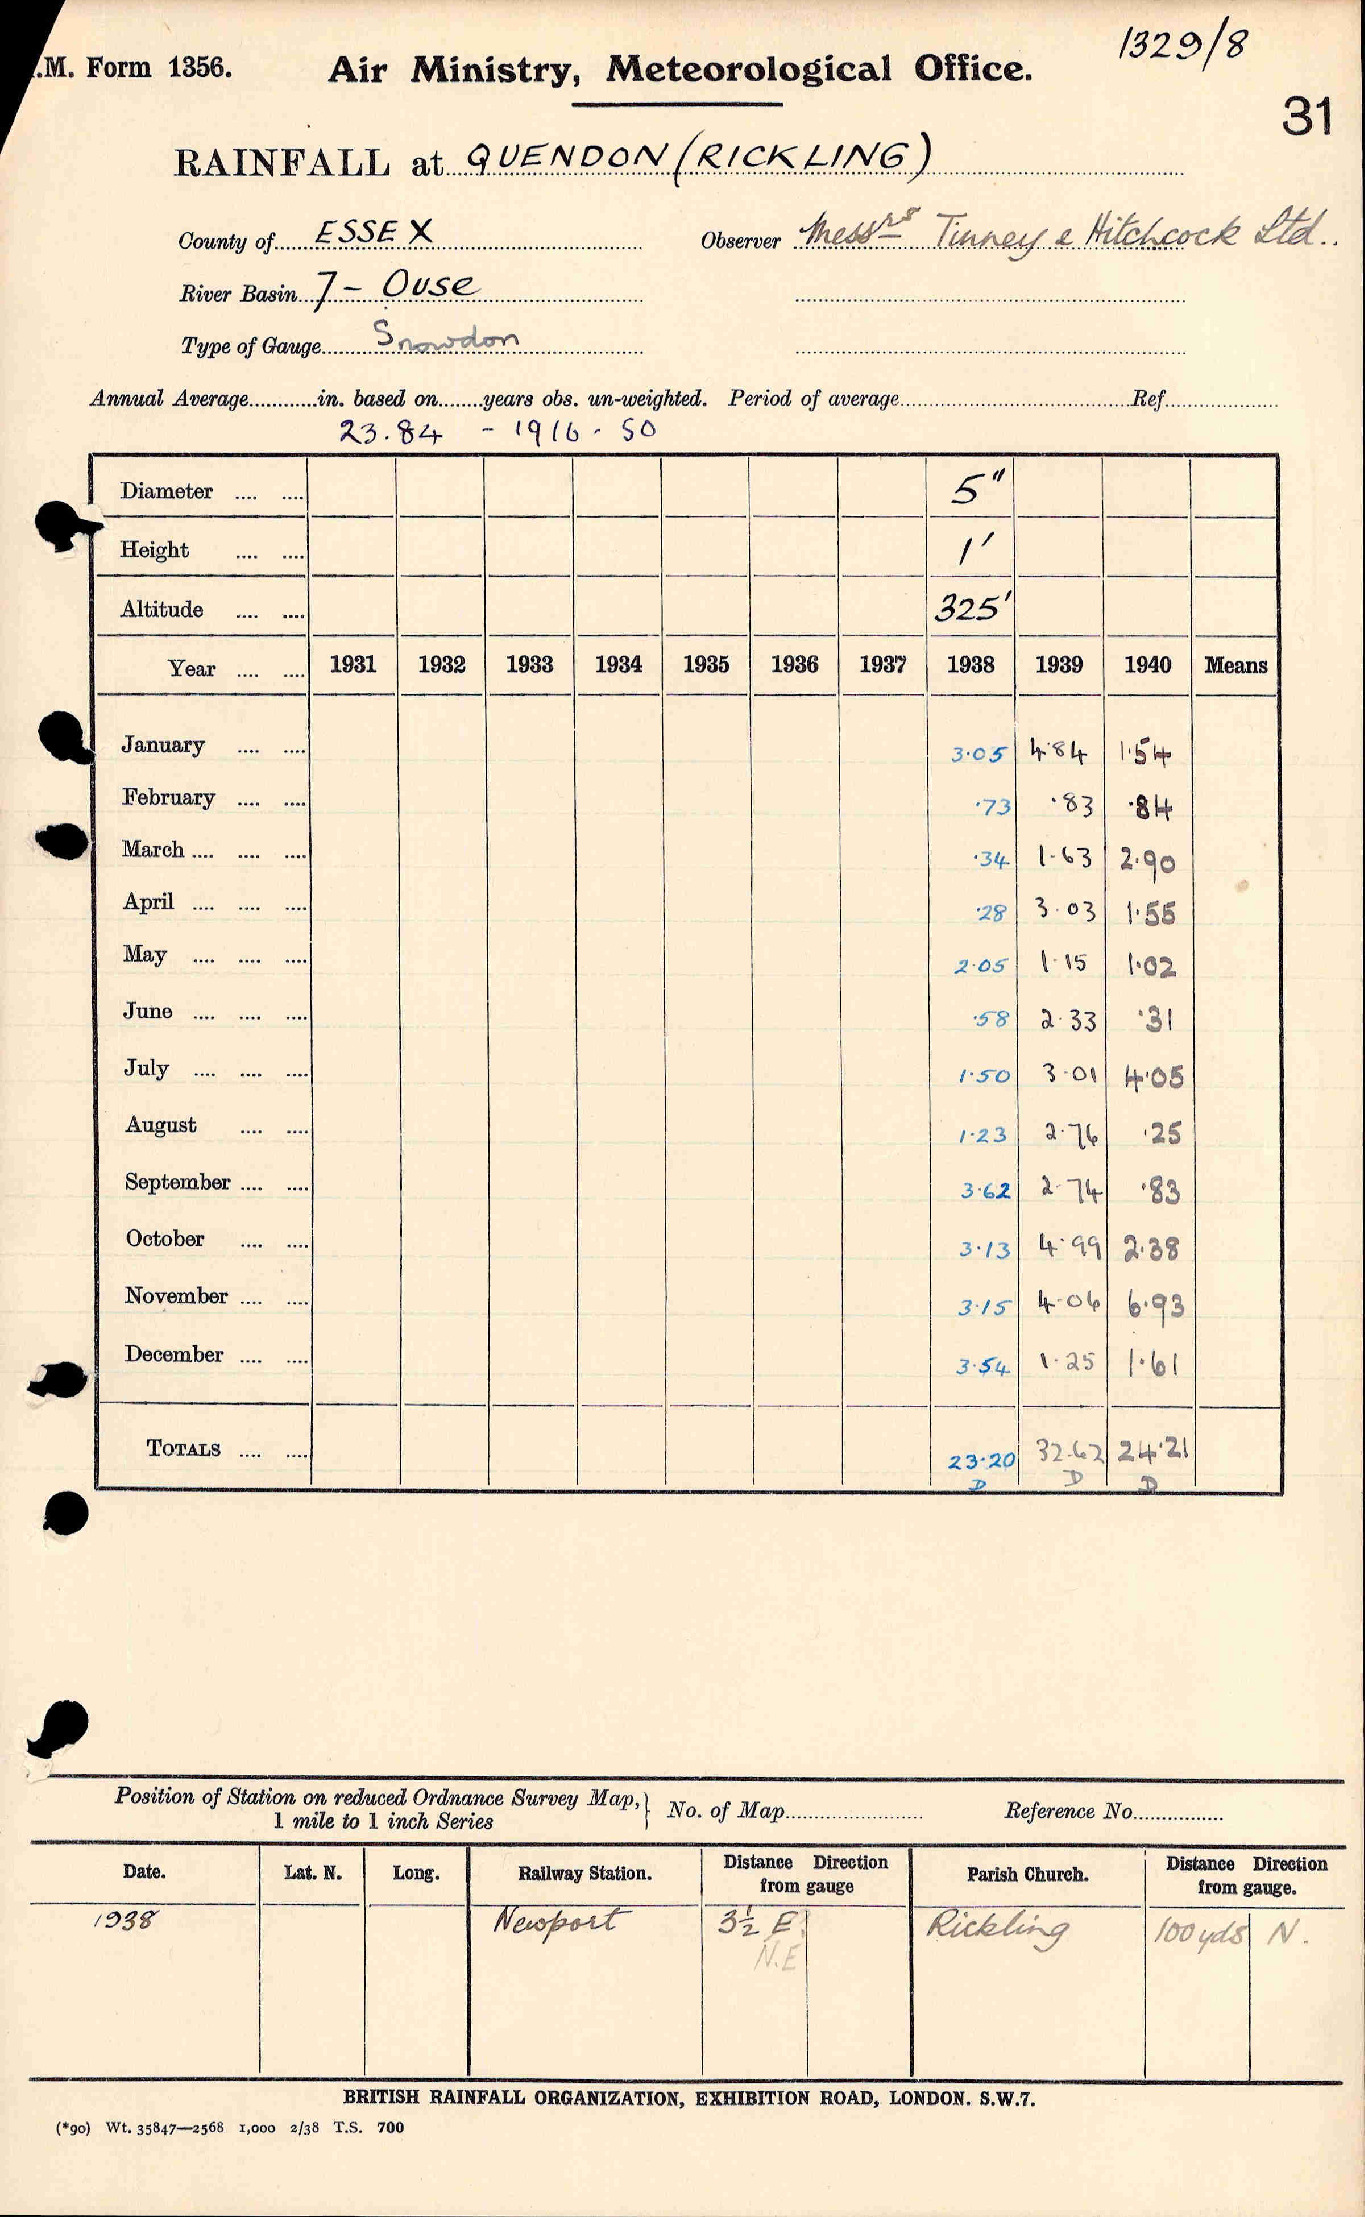 1329/8
.M. Form 1356. Air Ministry, Meteorological Office.
31
RAINFALL at QUENDON (RICKLING)
County of ESSEX Observer Messrs Tinney & Hitchcock Ltd.
River Basin 7 - Ouse
Type of Gauge Snowdon
Annual Average in. based on years obs. un-weighted. Period of average Ref
23.84 - 1916-50
Diameter 5"
Height 1'
Altitude 325'
Year 1931 1932 1933 1934 1935 1936 1937 1938 1939 1940 Means
January 3·05 4·84 1·54
February ·73 ·83 ·84
March ·34 1·63 2·90
April ·28 3·03 1·55
May 2·05 1·15 1·02
June ·58 2·33 ·31
July 1·50 3·01 4·05
August 1·23 2·76 ·25
September 3·62 2·74 ·83
October 3·13 4·99 2·38
November 3·15 4·06 6·93
December 3·54 1·25 1·61
TOTALS 23·20 32·62 24·21
D D D
Position of Station on reduced Ordnance Survey Map, 1 mile to 1 inch Series No. of Map Reference No.
Date. Lat. N. Long. Railway Station. Distance Direction from gauge Parish Church. Distance Direction from gauge.
1938 Newport 3½ E Rickling 100 yds N.
N.E
BRITISH RAINFALL ORGANIZATION, EXHIBITION ROAD, LONDON. S.W.7.
(*90) Wt. 35847—2568 1,000 2/38 T.S. 700